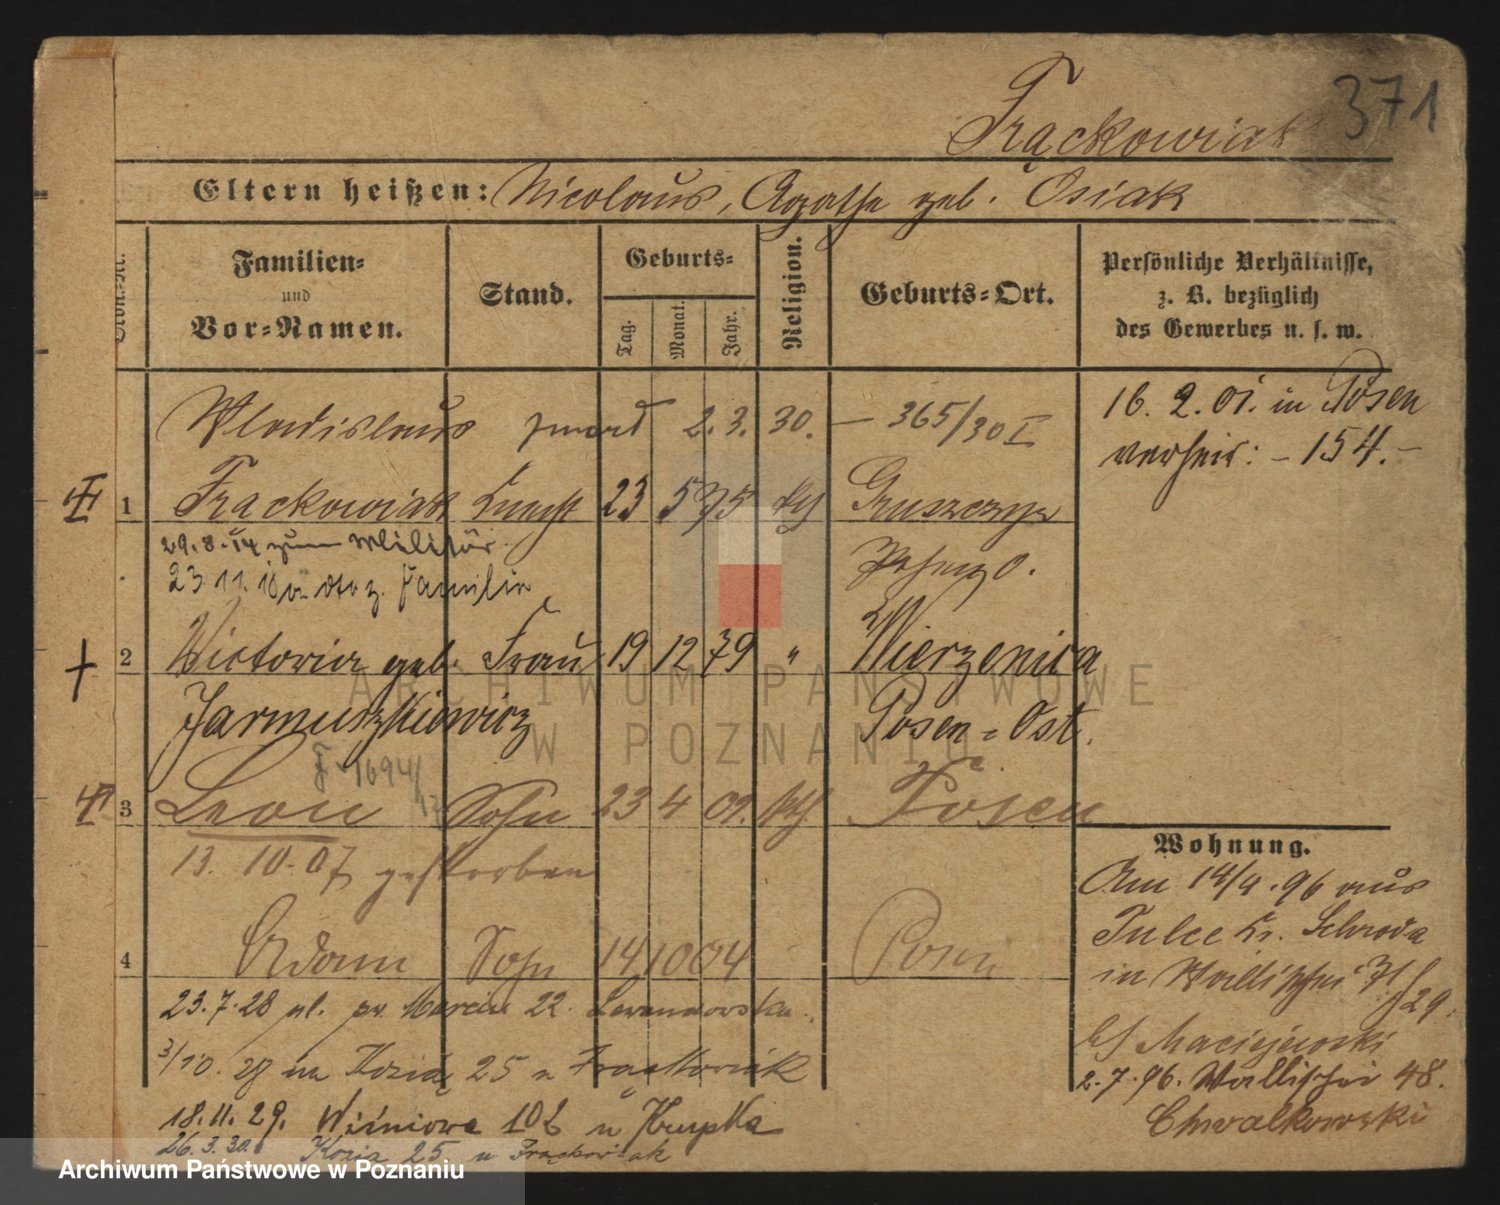 371
Frąckowiak
Eltern heißen: Nicolaus, Agathe geb. Osiak
Ordn.-Nr.
Familien-
und
Vor-Namen.
Stand.
Geburts-
Tag.
Monat.
Jahr.
Religion.
Geburts-Ort.
Persönliche Verhältnisse,
z. B. bezüglich
des Gewerbes u. s. w.
Wladislaus zmarł 2. 3. 30. – 365/30 I
1 Frąckowiak Knecht 23 5 75 kth Gruszczyn
29.8.14 zum Militär
23.11.18 z. Familie
2 Victoria geb. Frau 19 12 79 " Wierzenica
Jarmuszkiewicz Posen-Ost.
F 1694/
3 Leon Sohn 23 4 02. kth Posen
13. 10. 07 gestorben
4 Adam Sohn 14 10 04 Posen
23.7.28 pl. św. Marcin 22. Lewandowska
3/10. 28 na Kozią 25 u Frąckowiak
18.11.29. Wiśniowa 102 u Krupka
26.3.30. Kozia 25 u Frąckowiak
16. 2. 01. in Posen
verheir: – 154. –
Wohnung.
Am 14/4. 96 aus
Tulce Kr. Schroda
in Wallischei
29.
bei Maciejewski
2.7.96. Wallischei 48.
Chwalkowski
ARCHIWUM PAŃSTWOWE
W POZNANIU
Archiwum Państwowe w Poznaniu